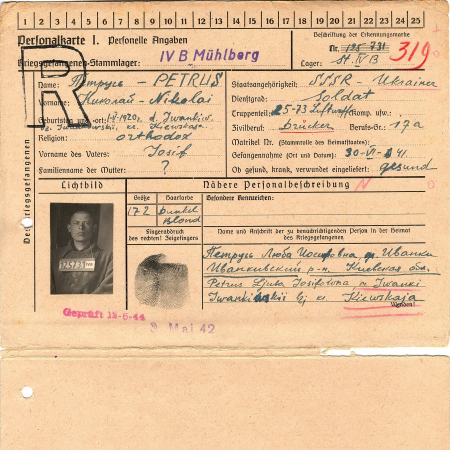 1 2 3 4 5 6 7 8 9 10 11 12 13 14 15 16 17 18 19 20 21 22 23 24 25
Personalkarte I. Personelle Angaben
IV B Mühlberg
Beschriftung der Erkennungsmarke
Nr. 125 731
319
Kriegsgefangenen-Stammlager:
Lager: St. IV B
R
Name: Петрусь - PETRUS
Vorname: Николай - Nikolai
Geburtstag und -ort: 1920, d. Iwankiw
kr. Kiewskaja
Religion: orthodox
Vorname des Vaters: Iosif
Familienname der Mutter: ?
Staatsangehörigkeit: SSSR - Ukrainer
Dienstgrad: Soldat
Truppenteil: 25-73 Luftwaffe Komp. usw.:
Zivilberuf: Drücker Berufs-Gr.: 17a
Matrikel Nr. (Stammrolle des Heimatstaates):
Gefangennahme (Ort und Datum): 30-VI-41
Ob gesund, krank, verwundet eingeliefert: gesund
Des Kriegsgefangenen
Lichtbild
Nähere Personalbeschreibung
N
Größe
Haarfarbe
Besondere Kennzeichen:
172
dunkel
blond
Fingerabdruck
des rechten! Zeigefingers
Name und Anschrift der zu benachrichtigenden Person in der Heimat
des Kriegsgefangenen
125731
Петрусь Люба Иосифовна, м. Иванки
Иванкивский р-н, Киевская обл.
Petrus Ljuba Iosifowna, m. Iwanki
kr. Kiewskaja
Wenden!
Geprüft 12-6-44
9 Mai 42